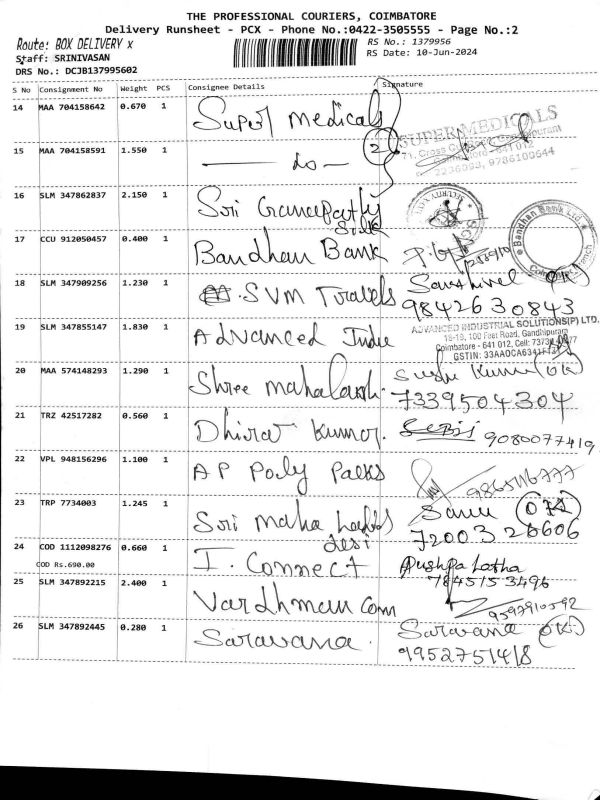 THE PROFESSIONAL COURIERS, COIMBATORE
Delivery Runsheet - PCX - Phone No.:0422-3505555 - Page No.:2
Route: BOX DELIVERY x
RS No.: 1379956
Staff: SRINIVASAN
RS Date: 10-Jun-2024
DRS No.: DCJB137995602
S No Consignment No Weight PCS Consignee Details Signature
14 MAA 704158642 0.670 1 Super Medicals
2
SUPER MEDICALS
15 MAA 704158591 1.550 1 — do —
9786100644
16 SLM 347862837 2.150 1 Sri Ganapathy
Silk
17 CCU 912050457 0.400 1 Bandhan Bank
Bandhan Bank Ltd.
18 SLM 347909256 1.230 1 SVM Travels (OK)
9842630843
19 SLM 347855147 1.830 1 Advanced Indu
ADVANCED INDUSTRIAL SOLUTIONS(P) LTD.
100 Feet Road, Gandhipuram
Coimbatore - 641 012, Cell:
GSTIN:
20 MAA 574148293 1.290 1 Shree Mahalakshmi Kumar (OK)
7339504304
21 TRZ 42517282 0.560 1 Dhirav Kumar.
9080077419
22 VPL 948156296 1.100 1 A P Poly Packs
23 TRP 7734003 1.245 1 Sri Maha (OK)
7200328606
24 COD 1112098276 0.660 1 I. Connect Pushpa Latha
COD Rs.690.00
7845153496
25 SLM 347892215 2.400 1 Vardhman Com
9597910592
26 SLM 347892445 0.280 1 Saravana. Saravana (OK)
9952751418